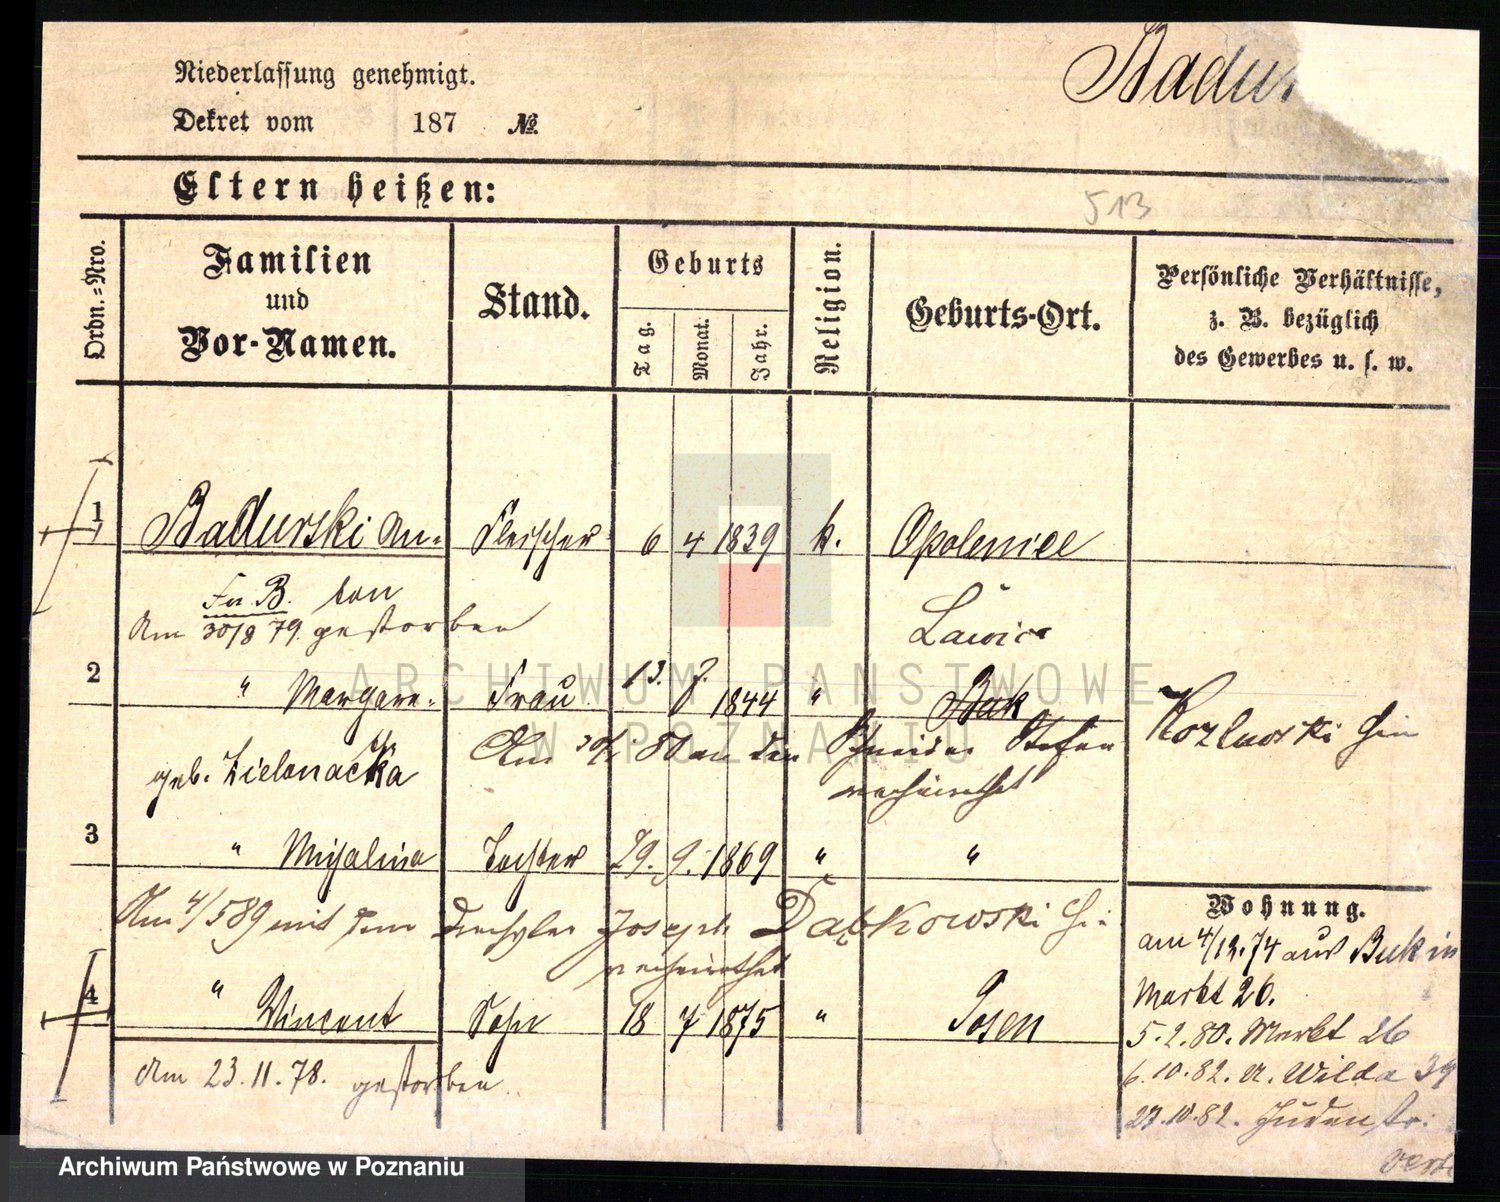 Niederlassung genehmigt.
Badur
Dekret vom 187 №
Eltern heißen:
513
Ordn.-Nro.
Familien
und
Vor-Namen.
Stand.
Geburts
Tag.
Monat.
Jahr.
Religion.
Geburts-Ort.
Persönliche Verhältnisse,
z. B. bezüglich
des Gewerbes u. s. w.
1 Badurski An- Fleischer 6 4 1839 k. Opolenice
ton
Am 30/8 79. gestorben
Ławica
2 " Margare- Frau 13. 7. 1844 " Buk
geb. Zielonacka
Am 80 an den Schneider Stefan Kozlowski hier
verheirathet
3 " Michalina Tochter 29. 9. 1869 " "
Am 4/5 89 mit dem Drechsler Joseph Dąbkowski hier
verheirathet
4 " Vincent Sohn 18 7 1875 " Posen
Am 23.11.78. gestorben
Wohnung.
am 4/12.74 aus Buk in
Markt 26.
5.2.80. Markt 26
6.10.82. U. Wilda 39
27.10.82. Judenstr.
ARCHIWUM PAŃSTWOWE
W POZNANIU
Archiwum Państwowe w Poznaniu